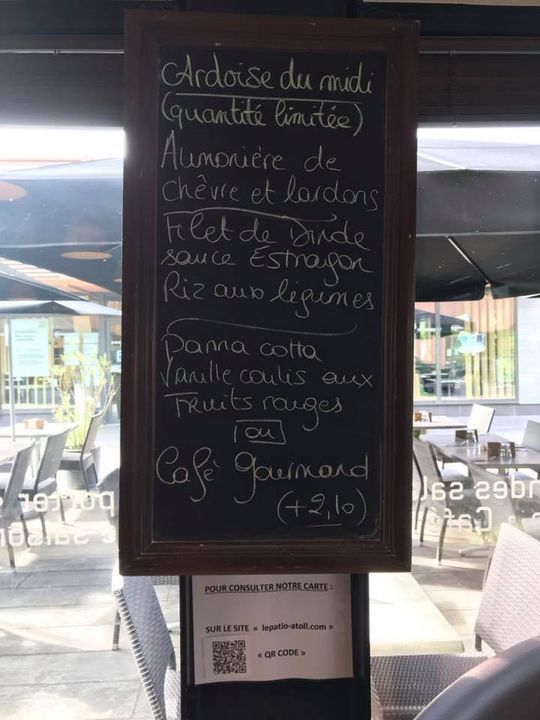 Ardoise du midi
(quantité limitée)
Aumonière de
chèvre et lardons
Filet de Dinde
sauce Estragon
Riz aux légumes
Panna cotta
Vanille coulis aux
Fruits rouges
ou
Café gourmand
(+2,10)
POUR CONSULTER NOTRE CARTE :
SUR LE SITE « lepatio-atoll.com »
« QR CODE »